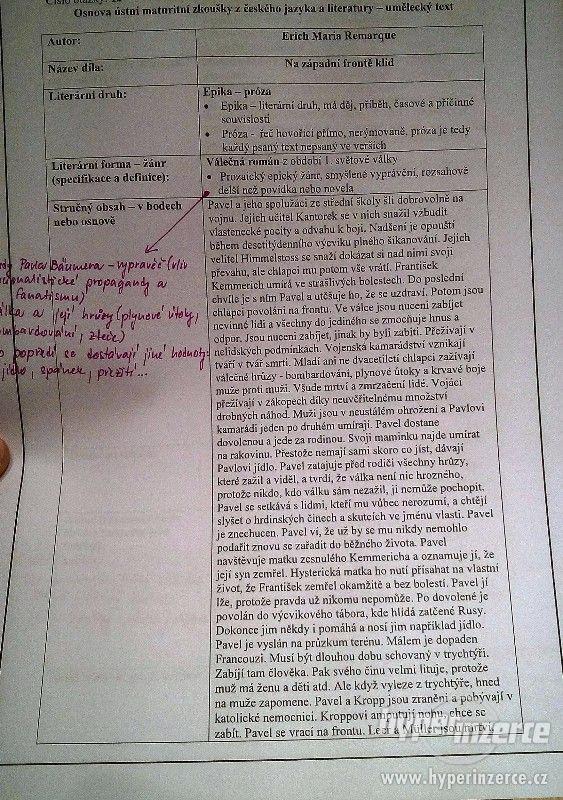 Osnova ústní maturitní zkoušky z českého jazyka a literatury – umělecký text
Autor:
Erich Maria Remarque
Název díla:
Na západní frontě klid
Literární druh:
Epika – próza
• Epika – literární druh, má děj, příběh, časové a příčinné
souvislosti
• Próza - řeč hovořící přímo, nerýmovaně, próza je tedy
každý psaný text nepsaný ve verších
Literární forma – žánr
(specifikace a definice):
Válečná román z období 1. světové války
• Prozaický epický žánr, smyšlené vyprávění, rozsahově
delší než povídka nebo novela
Stručný obsah – v bodech
nebo osnově
Pavel a jeho spolužáci ze střední školy šli dobrovolně na
vojnu. Jejich učitel Kantorek se v nich snažil vzbudit
vlastenecké pocity a odvahu k boji. Nadšení je opouští
během desetitýdenního výcviku plného šikanování. Jejich
velitel Himmelstoss se snaží dokázat si nad nimi svoji
převahu, ale chlapci mu potom vše vrátí. František
Kemmerich umírá ve strašlivých bolestech. Do poslední
chvíle je s ním Pavel a utěšuje ho, že se uzdraví. Potom jsou
chlapci povoláni na frontu. Ve válce jsou nuceni zabíjet
nevinné lidi a všechny do jediného se zmocňuje hnus a
odpor. Jsou nuceni zabíjet, jinak by byli zabiti. Přežívají v
nelidských podmínkách. Vojenská kamarádství vznikají
tváří v tvář smrti. Mladí ani ne dvacetiletí chlapci zažívají
válečné hrůzy - bombardování, plynové útoky a krvavé boje
muže proti muži. Všude mrtví a zmrzačení lidé. Vojáci
přežívají v zákopech díky neuvěřitelnému množství
drobných náhod. Muži jsou v neustálém ohrožení a Pavlovi
kamarádi jeden po druhém umírají. Pavel dostane
dovolenou a jede za rodinou. Svoji maminku najde umírat
na rakovinu. Přestože nemají sami skoro co jíst, dávají
Pavlovi jídlo. Pavel zatajuje před rodiči všechny hrůzy,
které zažil a viděl, a tvrdí, že válka není nic hrozného,
protože nikdo, kdo válku sám nezažil, ji nemůže pochopit.
Pavel se setkává s lidmi, kteří mu vůbec nerozumí, a chtějí
slyšet o hrdinských činech a skutcích ve jménu vlasti. Pavel
je znechucen. Pavel ví, že už by se mu nikdy nemohlo
podařit znovu se zařadit do běžného života. Pavel
navštěvuje matku zesnulého Kemmericha a oznamuje jí, že
její syn zemřel. Hysterická matka ho nutí přísahat na vlastní
život, že František zemřel okamžitě a bez bolesti. Pavel jí
lže, protože pravda už nikomu nepomůže. Po dovolené je
povolán do výcvikového tábora, kde hlídá zatčené Rusy.
Dokonce jim někdy i pomáhá a nosí jim například jídlo.
Pavel je vyslán na průzkum terénu. Málem je dopaden
Francouzi. Musí být dlouhou dobu schovaný v trychtýři.
Zabíjí tam člověka. Pak svého činu velmi lituje, protože
muž má ženu a děti atd. Ale když vyleze z trychtýře, hned
na muže zapomene. Pavel a Kropp jsou zraněni a pobývají v
katolické nemocnici. Kroppovi amputují nohu, chce se
zabít. Pavel se vrací na frontu. Leer a Müller jsou mrtví.
Pavla Bäumera – vypravěč (vliv
propagandy a
fanatismu)
a její hrůzy (plynové útoky,
popředí se dostávají jiné hodnoty:
jídlo, spánek, přežití...
hyperinzerce
inzerce
www.hyperinzerce.cz